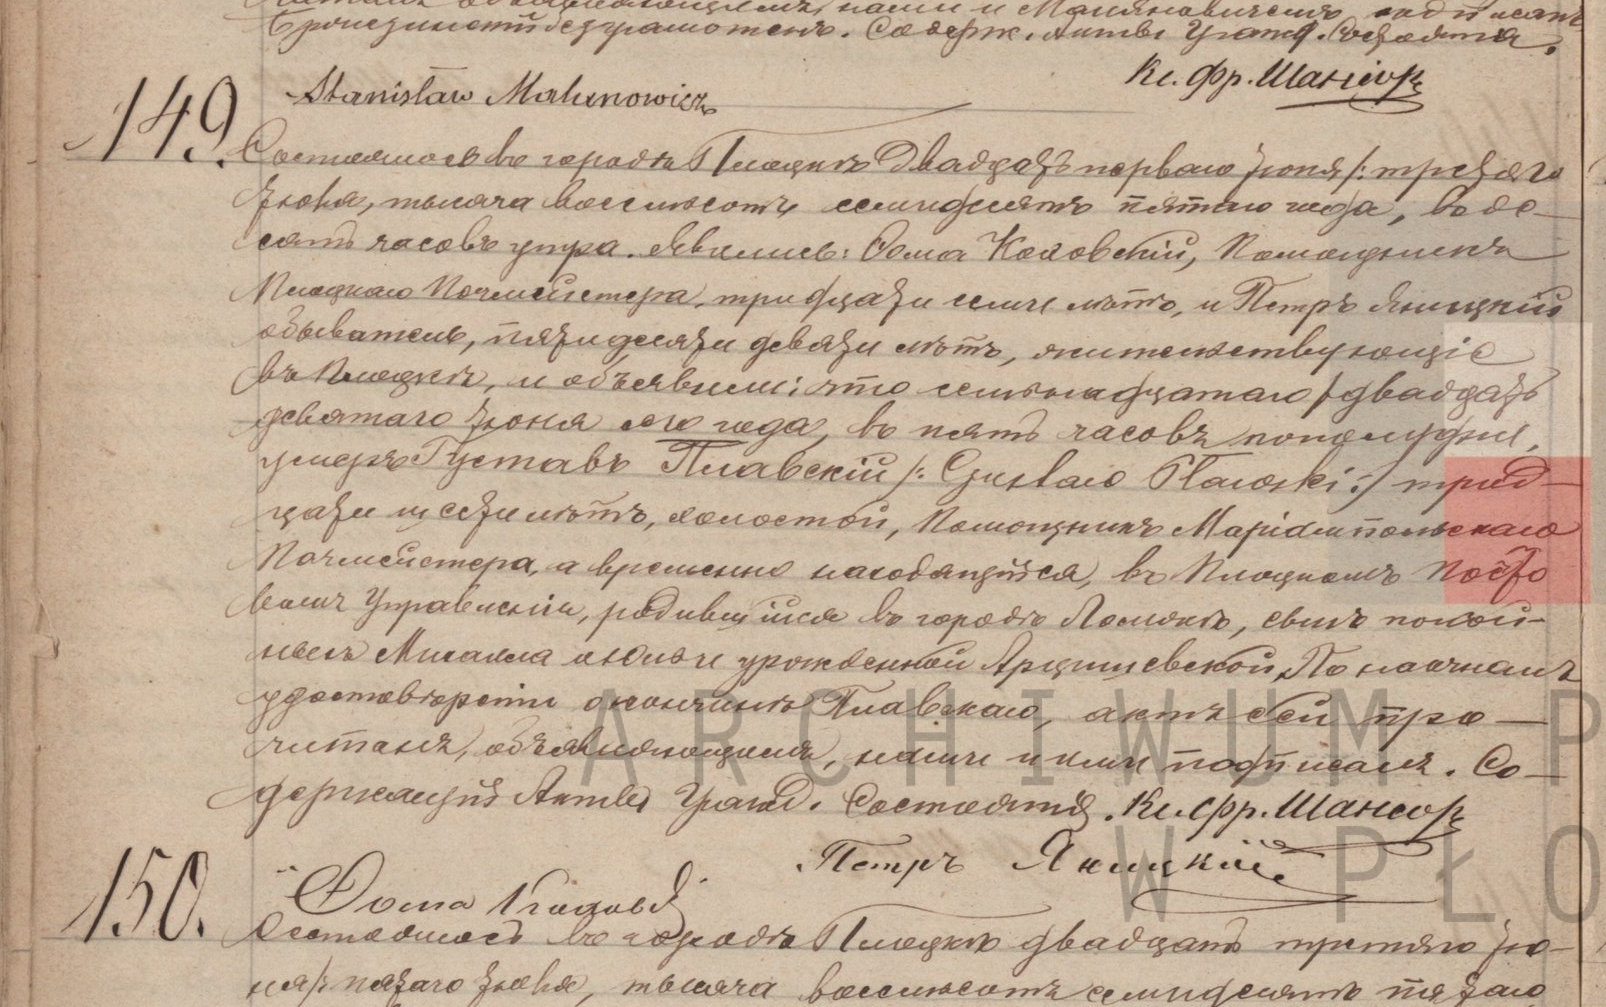 Stanisław Malinowicz
Кс. Фр. Шансор
149.
Состоялось въ городѣ Плоцкѣ двадцать перваго Іюня /: третьяго
Іюля, тысяча восемьсотъ семьдесятъ пятаго года, въ де-
сять часовъ утра. Явились: Ѳома Козовскій, Помощникъ
Плоцкаго Почмейстера, тридцати семи лѣтъ, и Петръ Яницкій
обыватель, пятидесяти девяти лѣтъ, жительствующіе
въ Плоцкѣ, и объявили: что семьнадцатаго / двадцать
девятаго Іюня сего года, въ пять часовъ пополудни,
умеръ Густавъ Плавскій /: Gustaw Pławski :/ трид-
цати шести лѣтъ, холостой, Помощникъ Маріампольскаго
Почмейстера, а временно находящійся, въ Плоцкомъ Почто
вомъ Управленіи, родившійся въ городѣ Ломжѣ, сынъ покой-
ныхъ Михаила и Юліи урожденной Арцишевской. По наочномъ
удостовѣреніи о кончинѣ Плавскаго, актъ сей про-
читанъ, объявляющимъ, нами и ими подписанъ. Со-
держащій Акты Гражд. Состоянія. Кс. Фр. Шансор
Петръ Яницкій
150.
Ѳома
Состоялось въ городѣ Плоцкѣ двадцать третьяго Ію-
ня /: пятаго Іюля, тысяча восемьсотъ семьдесятъ пятаго
ARCHIWUM P
W PŁO